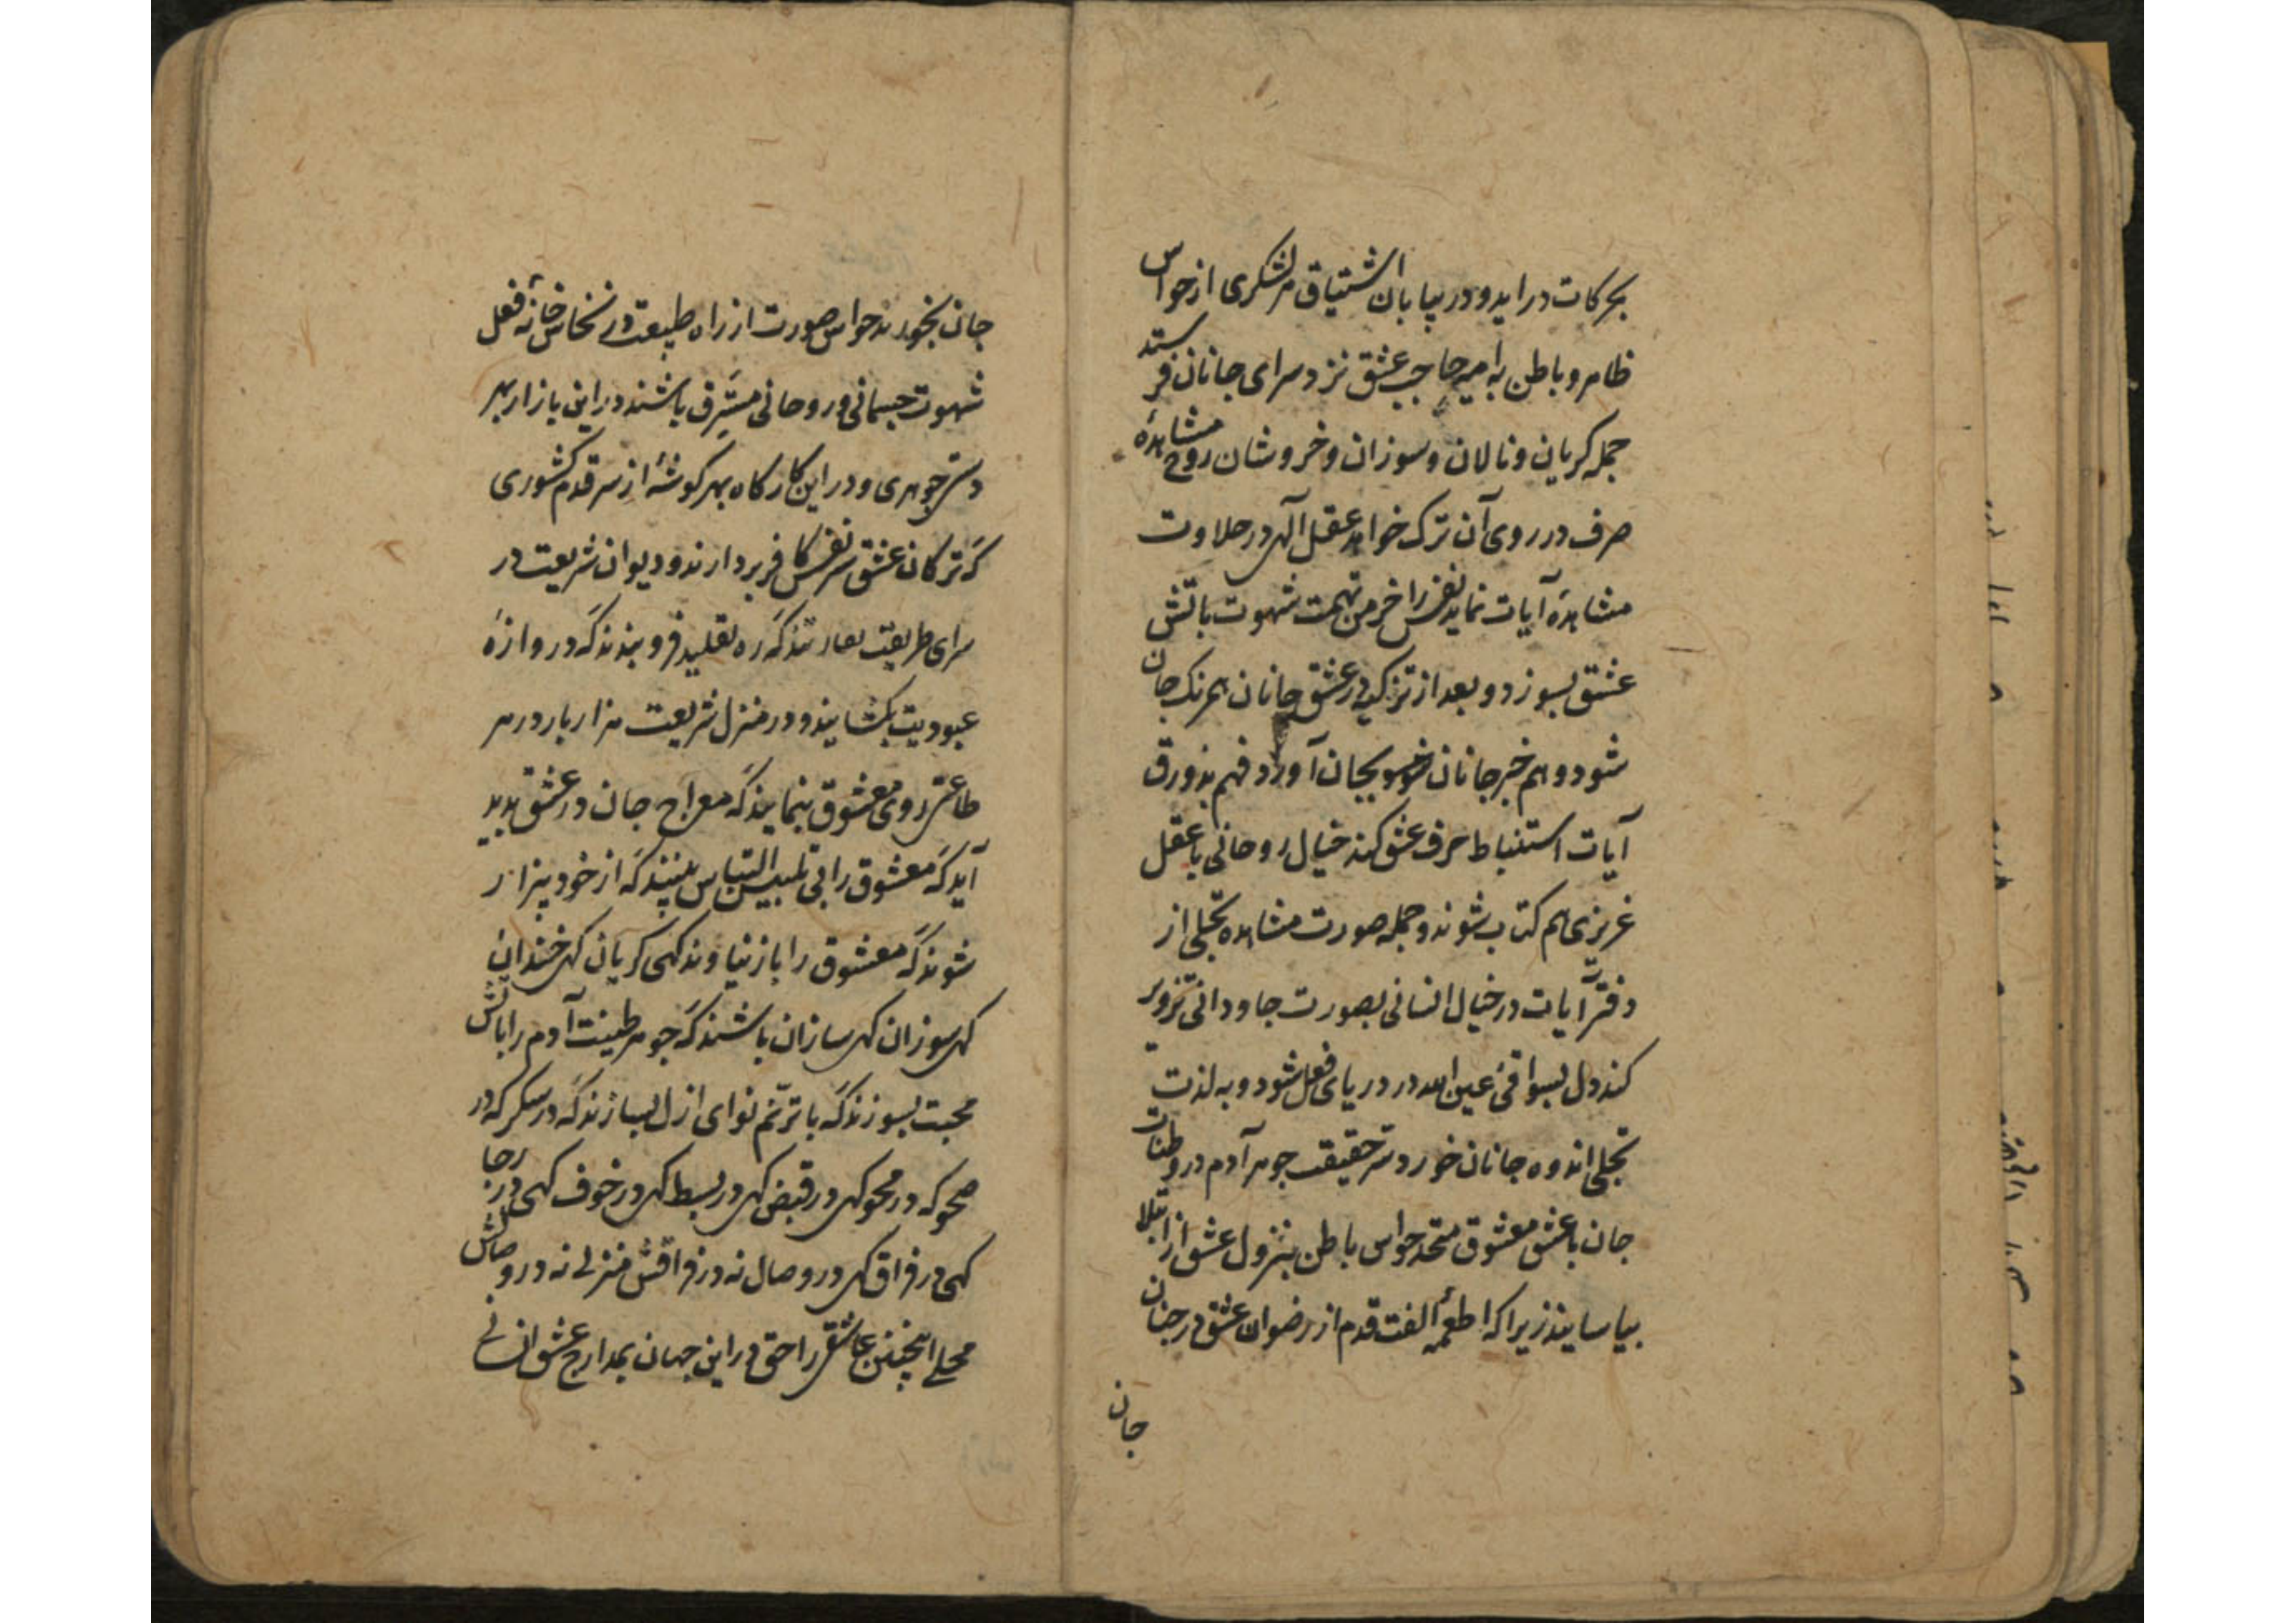 بحرکات در اید و در بیابان اشتیاق هر لشکری از حواس
ظاهر و باطن به امیر حاجب عشق نزد سرای جانان فرستد
جمله کریان و نالان و سوزان و خروشان روح مشاهدهٔ
صرف در روی آن ترک خواهد عقل آلهی در حلاوت
مشاهدهٔ آیات نماید نفس را خرمن نهمت شهوت باتش
عشق بسوزد و بعد از تزکیه در عشق جانان همرنک جان
شود وهم خبر جانان بجان آورد فهم بذورق
آیات استنباط حرف عشق کند خیال روحانی با عقل
غریزی هم کتاب شوند و جمله صورت مشاهده تجلی از
دفتر آیات در خیال انسانی بصورت جاودانی تزویر
کند دل بسواقئ عین الله در دریای فعل شود و به لذت
تجلی اندوه جانان خورد سر حقیقت جوهر آدم در وطنات
جان با عشق معشوق متحد حواس باطن بنزول عشق از ابتلا
بیاسایند زیرا که اطعمهٔ الفت قدم از رضوان عشق در جنان
جان
جان بخورند حواس صورت از راه طبیعت در نخاس خانهٔ فعل
شهوت جسمانی و روحانی مشرف باشند در این بازار بهر
دستی جوهری و در این کارکاه بهر کوشهٔ از سر قدم کشوری
که ترکان عشق سر نفس کافر بردارند و دیوان شریعت در
سرای طریقت که ره تقلید فرو بندند که دروازهٔ
عبودیت بکشایند و در منزل شریعت هزار بار در هر
طاعتی روی معشوق بنمایند که معراج جان در عشق بدید
آید که معشوق را بی تلبیس التباس بینند که از خود بیزار
شوند که معشوق را باز نیاوند کهی کریان کهی خندان
کهی سوزان کهی سازان باشند که جوهر طینت آدم را باتش
محبت بسوزند که با ترنم نوای ازل بسازند که در سکر که در
صحو که در محو کهی در قبض کهی در بسط کهی در خوف کهی در رجا
کهی در فراق کهی در وصال نه در فراقش منزلی نه در وصالش
محلی اینچنین عاشقی را حق در این جهان بمدارج عشق انسانی